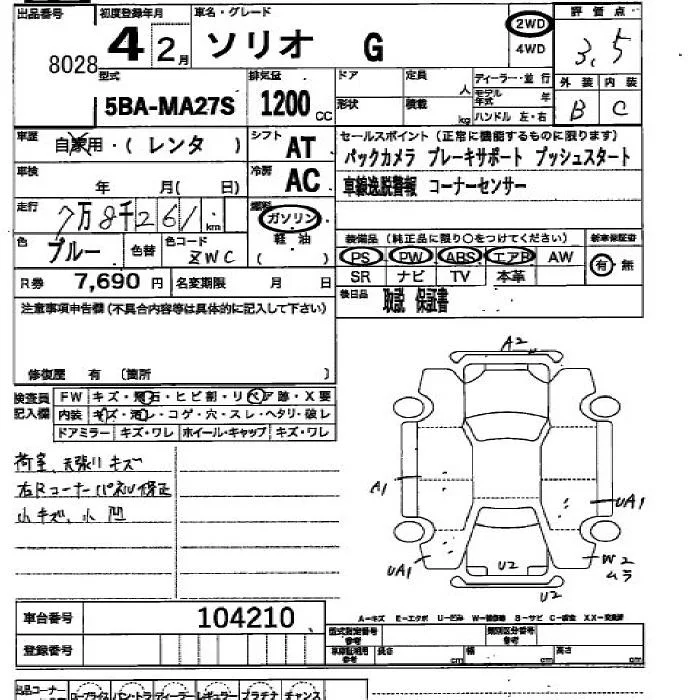 出品番号 初度登録年月 車名・グレード 評価点
8028 4 2月 ソリオ G 2WD 4WD 3.5
型式 排気量 ドア 定員 人 ディーラー・並行 外装 内装
5BA-MA27S 1200cc 形状 積載 kg モデル年式 年 B C
ハンドル 左・右
車歴 自家用・(レンタ) シフト AT セールスポイント(正常に機能するものに限ります)
バックカメラ ブレーキサポート プッシュスタート
車検 年 月(日) 冷房 AC 車線逸脱警報 コーナーセンサー
走行 7万8千261km 燃料 ガソリン
軽油
( )
色 ブルー 色替 色コード ZWC
装備品(純正品に限り○をつけてください) 新車保証書
PS PW ABS エアB AW 有・無
SR ナビ TV 本革
R券 7,690円 名変期限 月 日
後日品 取説 保証書
注意事項申告欄(不具合内容等は具体的に記入して下さい)
修復歴 有 (箇所 )
検査員記入欄 FW キズ・飛石・ヒビ割・リペア跡・X要
内装 キズ・汚レ・コゲ・穴・スレ・ヘタリ・破レ
ドアミラー キズ・ワレ ホイール・キャップ キズ・ワレ
荷室、天張りキズ
右Rコーナーパネル修正
小キズ、小凹
A2
A1
UA1
UA1
W2
ムラ
U2
U2
車台番号 104210
登録番号
A=キズ E=エクボ U=凹み S=サビ
型式指定番号 参考 類別区分番号 参考
長さ cm 幅 cm 高さ cm
出品コーナー